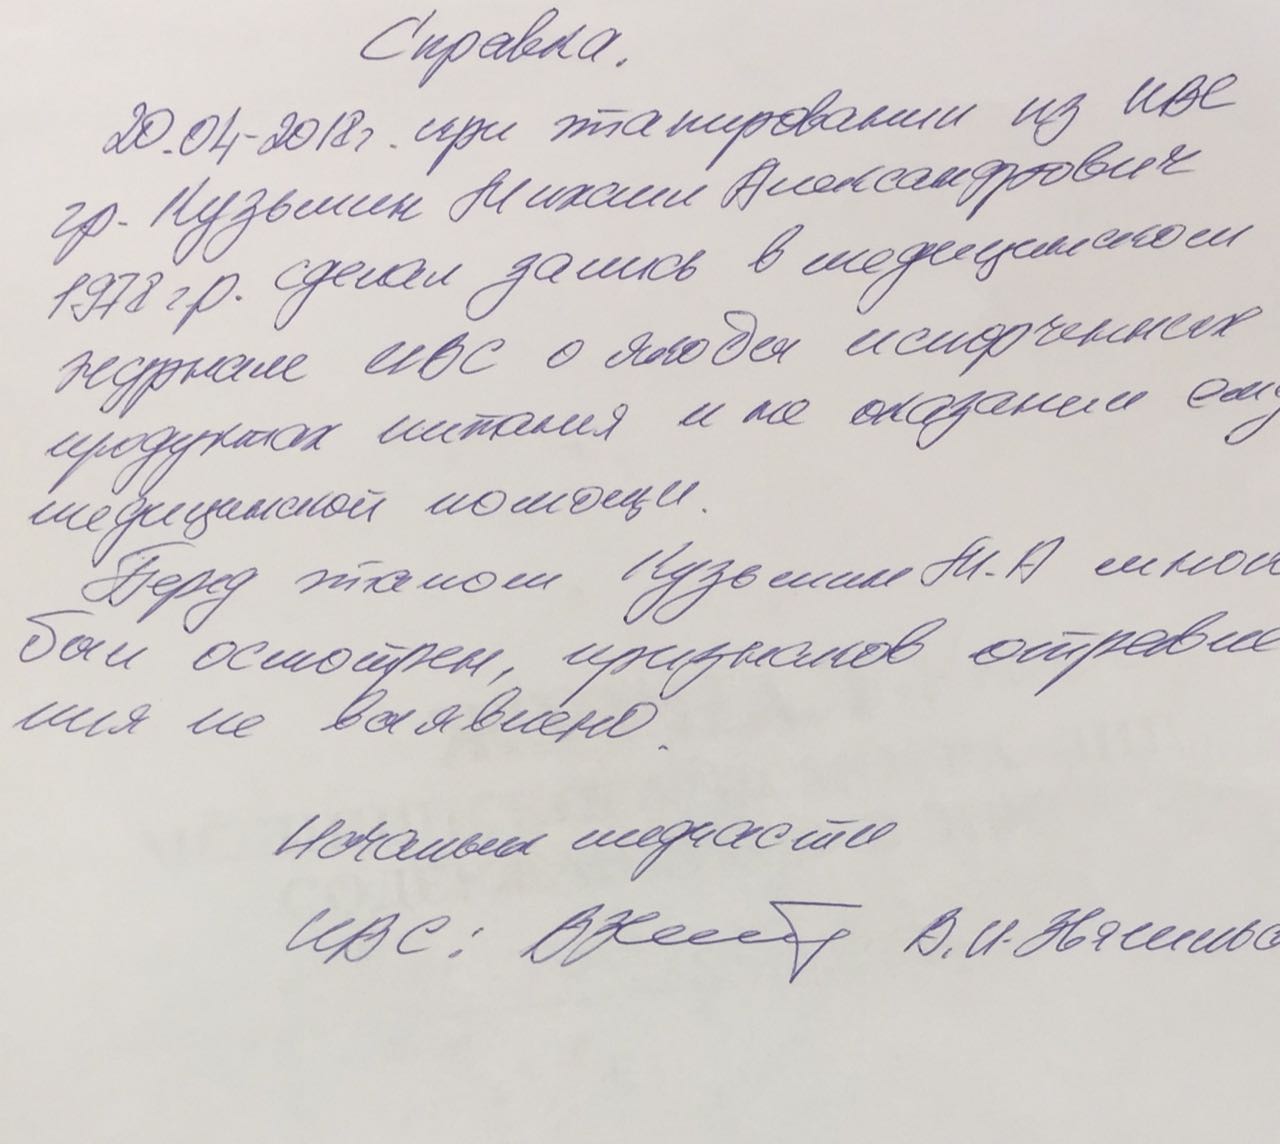 Справка.
20.04-2018г. при этапировании из ИВС
гр. Кузьмин Михаил Александрович
1978 г.р. сделал запись в медицинском
журнале ИВС о якобы испорченных
продуктах питания и не оказании ему
медицинской помощи.
Перед этапом Кузьмин М.А мной
был осмотрен, признаков отравле
ния не выявлено.
Начальник медчасти
ИВС: В.И.